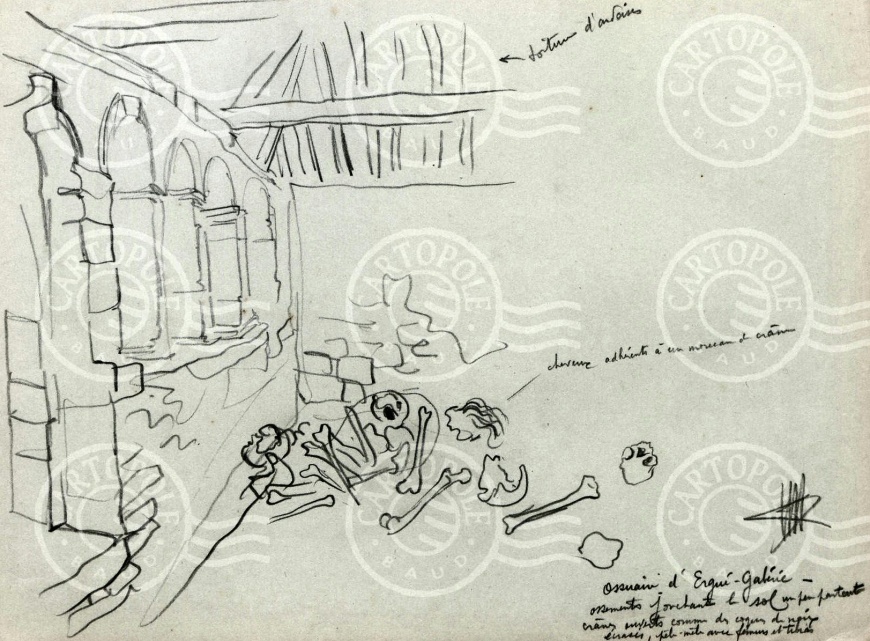 ← toiture d'ardoises
cheveux adhérents à un morceau de crâne
Ossuaire d'Ergué-Gabéric -
ossements jonchant le sol un peu partout
crânes ouverts comme des coques de noix
écrasés, pêle-mêle avec fémurs et tibias
CARTOPOLE
BAUD
CARTOPOLE
BAUD
CARTOPOLE
BAUD
CARTOPOLE
BAUD
CARTOPOLE
BAUD
CARTOPOLE
BAUD
CARTOPOLE
BAUD
CARTOPOLE
BAUD
CARTOPOLE
BAUD